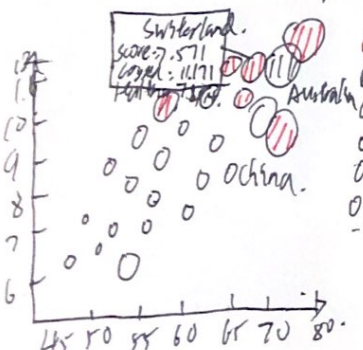 Switzerland.
score: 7.571
Logged: 11.171
Australia
China.
10
9
8
7
6
45 50 55 60 65 70 80.